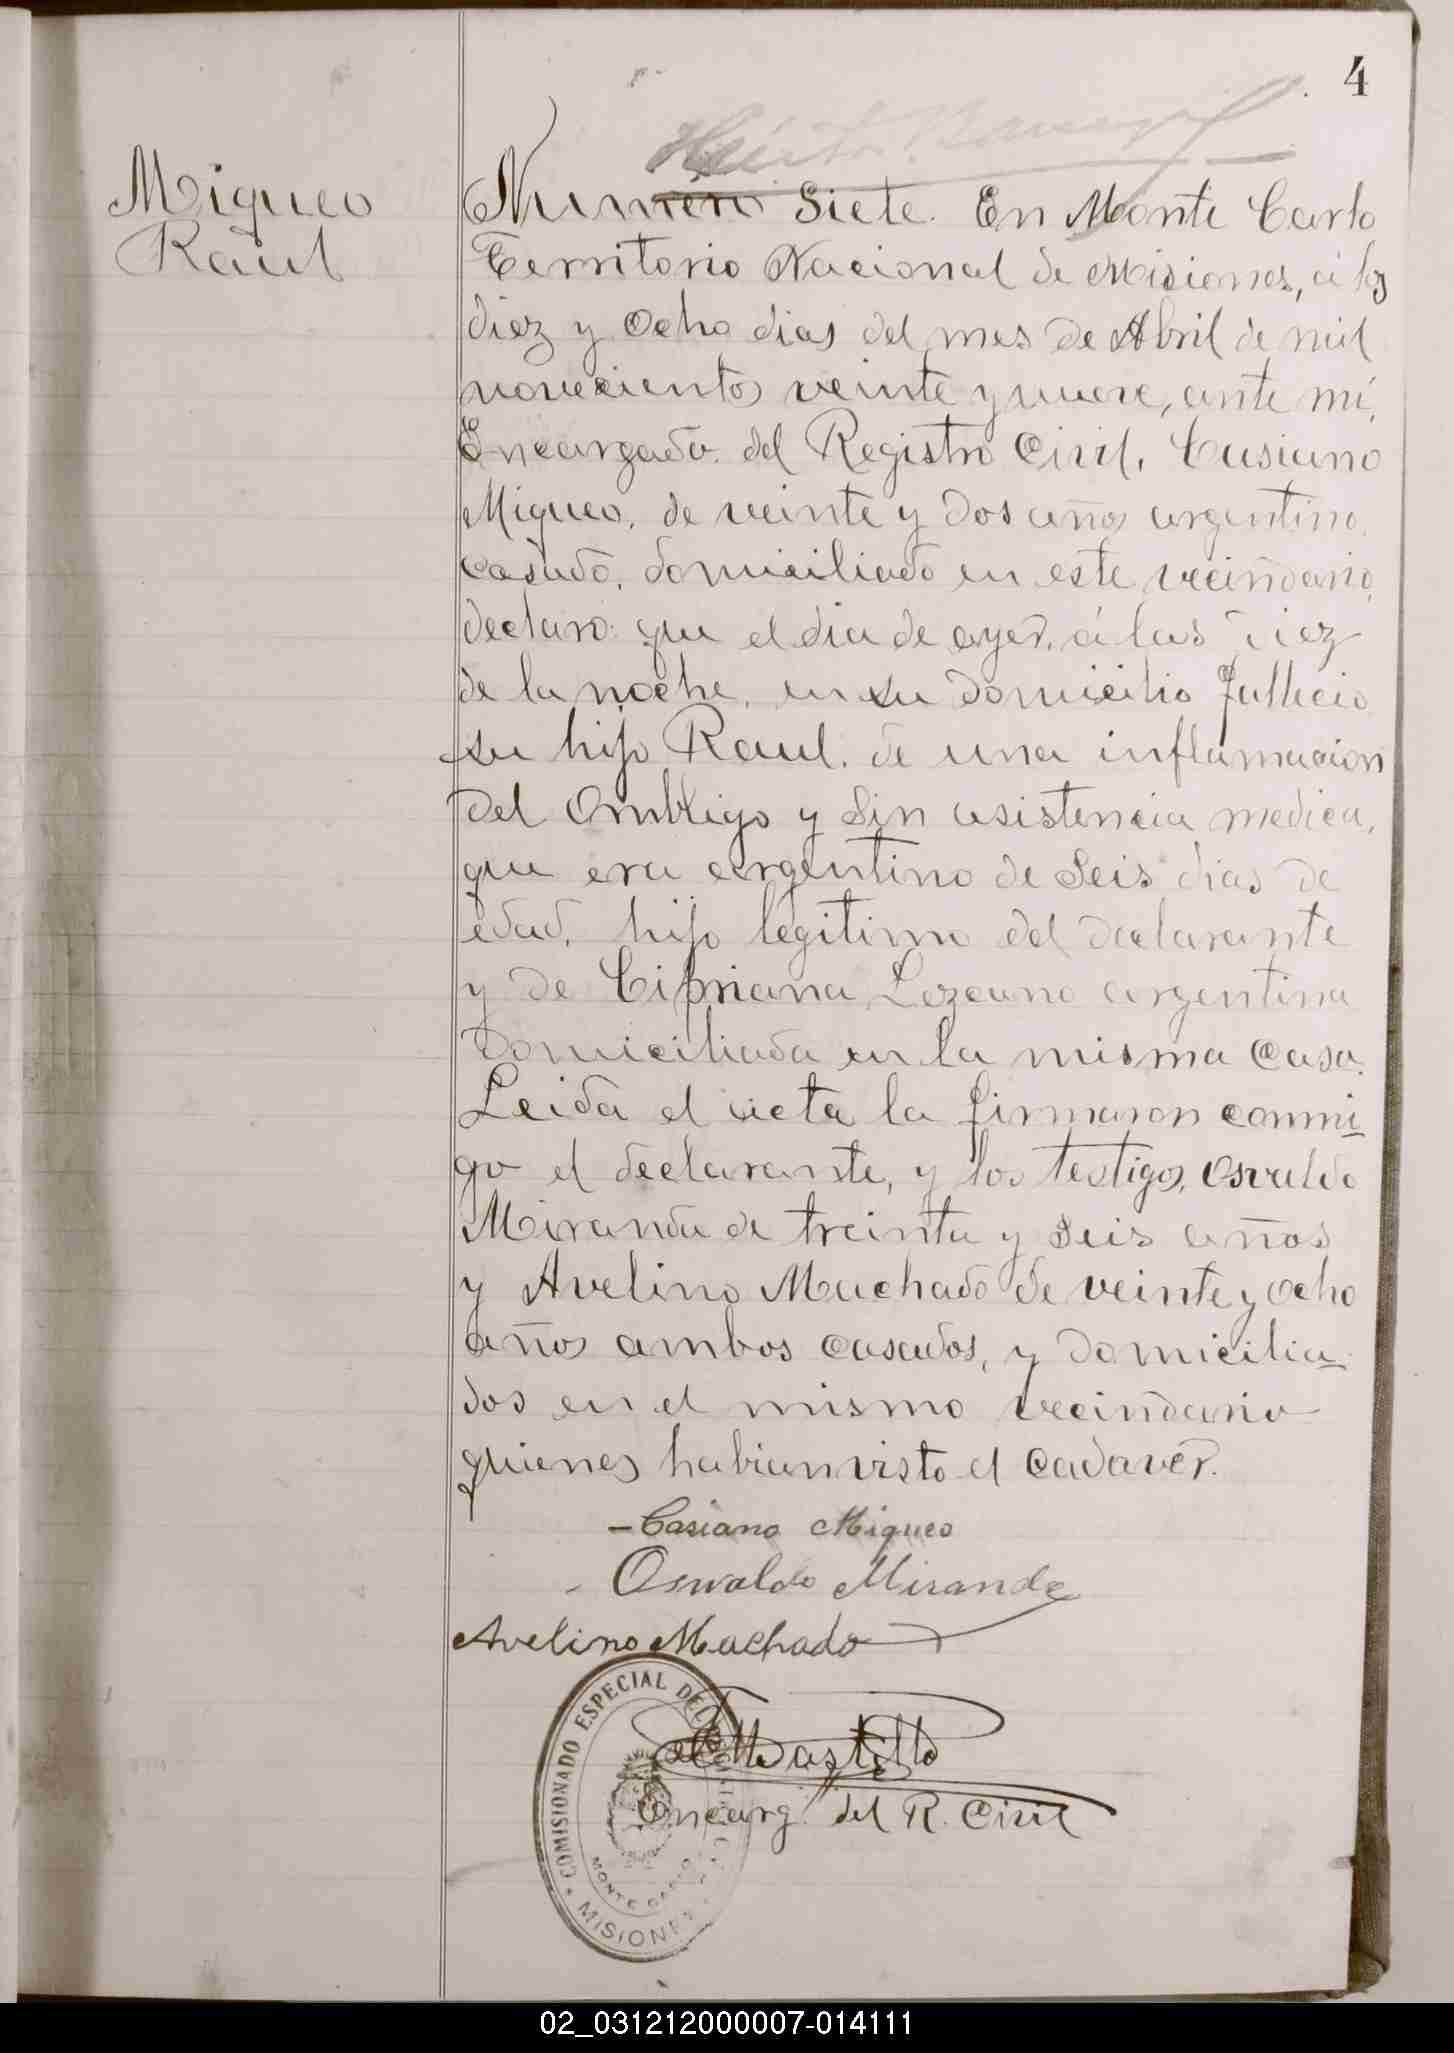 4
Migueo
Raul
Numero Siete. En Monte Carlo
Territorio Nacional de Misiones, á los
diez y ocho dias del mes de Abril de mil
novecientos veinte y nueve, ante mí,
Encargado del Registro Civil, Casiano
Migueo, de veinte y dos años argentino,
casado, domiciliado en este vecindario,
declaró: que el dia de ayer, á las diez
de la noche, en su domicilio fallecio
su hijo Raul, de una inflamacion
del Ombligo y Sin asistencia medica,
que era argentino de Seis dias de
edad, hijo legitimo del declarante
y de Cipriana Lezcano argentina
Domiciliada en la misma casa.
Leida el acta la firmaron conmi-
go el declarante, y los testigos, Osvaldo
Miranda de treinta y seis años
y Avelino Machado de veinte y ocho
años ambos casados, y domicilia-
dos en el mismo vecindario
quienes habian visto el cadaver.
- Casiano Migueo
- Oswaldo Miranda
Avelino Machado
Castillo
Encarg. del R. Civil
COMISIONADO ESPECIAL DEL
MONTE CARLO
MISIONES
02_031212000007-014111